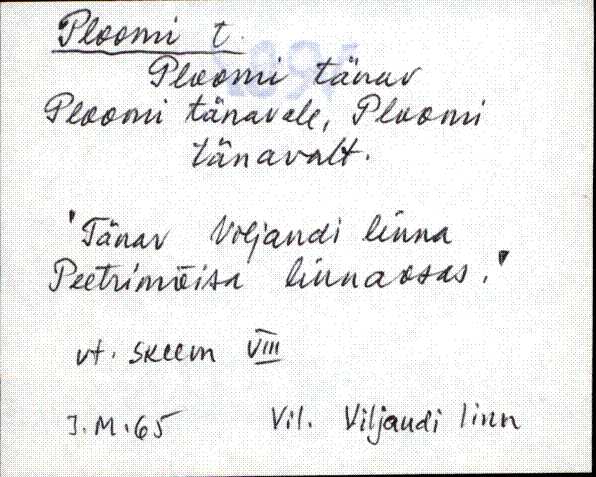 Ploomi t.
Ploomi tänav
Ploomi tänavale, Ploomi
tänavalt.
"Tänav Viljandi linna
Peetrimõisa linnaosas."
vt. skeem VIII
J.M.65 Vil. Viljandi linn